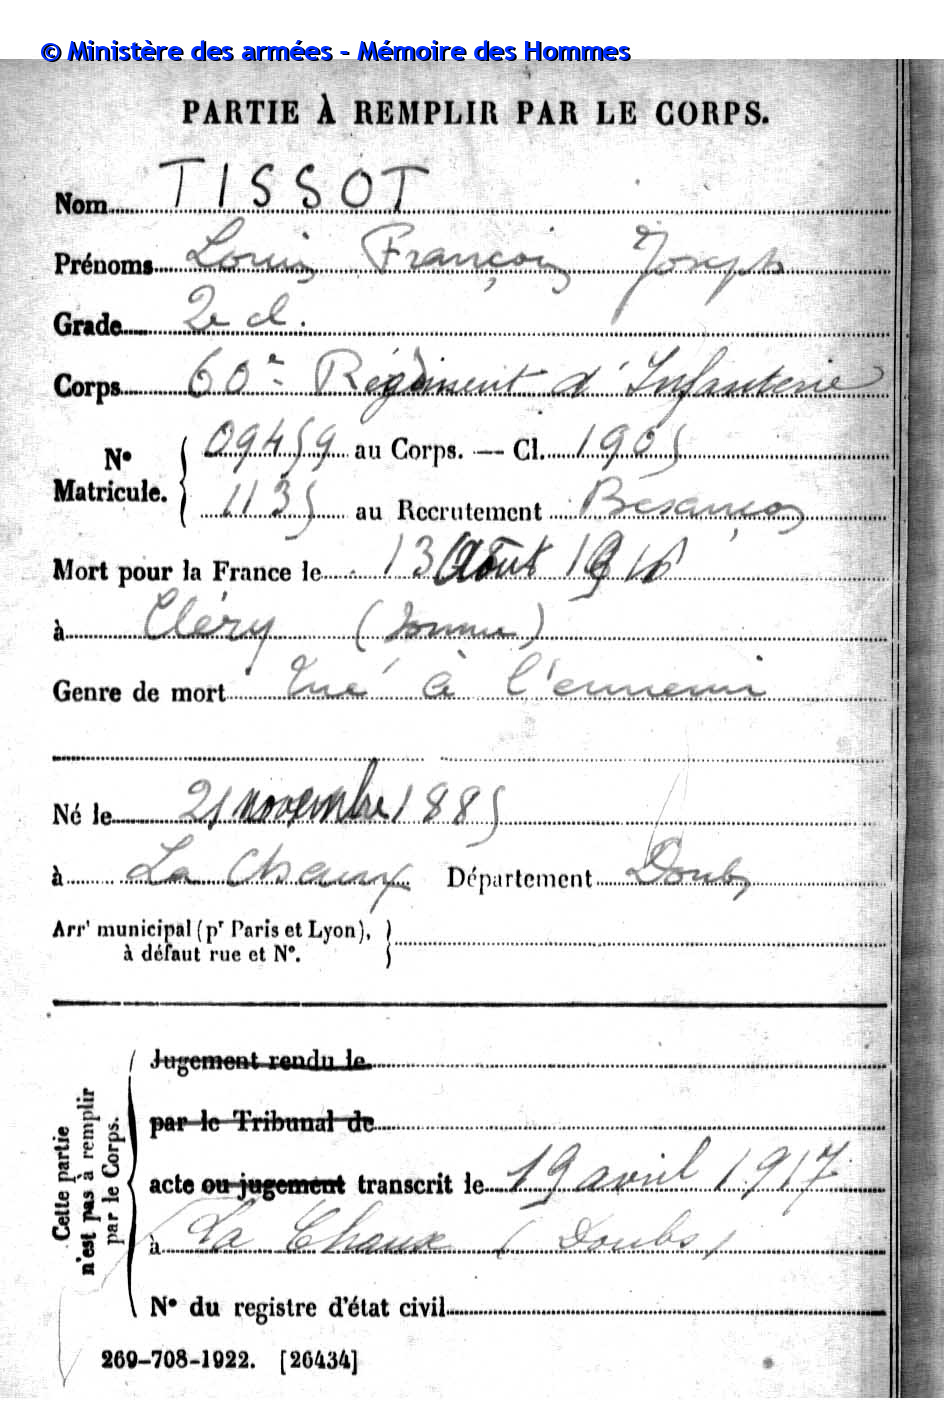 © Ministère des armées - Mémoire des Hommes
PARTIE À REMPLIR PAR LE CORPS.
Nom TISSOT
Prénoms Louis François Joseph
Grade 2e cl.
Corps 60e Régiment d'Infanterie
N° Matricule. { 09459 au Corps. — Cl. 1905
1135 au Recrutement Besançon
Mort pour la France le 13 Août 1916
à Cléry (Somme)
Genre de mort Tué à l'ennemi
Né le 21 novembre 1885
à La Chaux Département Doubs
Arrt municipal (pr Paris et Lyon),
à défaut rue et N°.
Cette partie
n'est pas à remplir
par le Corps.
Jugement rendu le
par le Tribunal de
acte ou jugement transcrit le 19 avril 1917
à La Chaux (Doubs)
N° du registre d'état civil
269-708-1922. [26434]